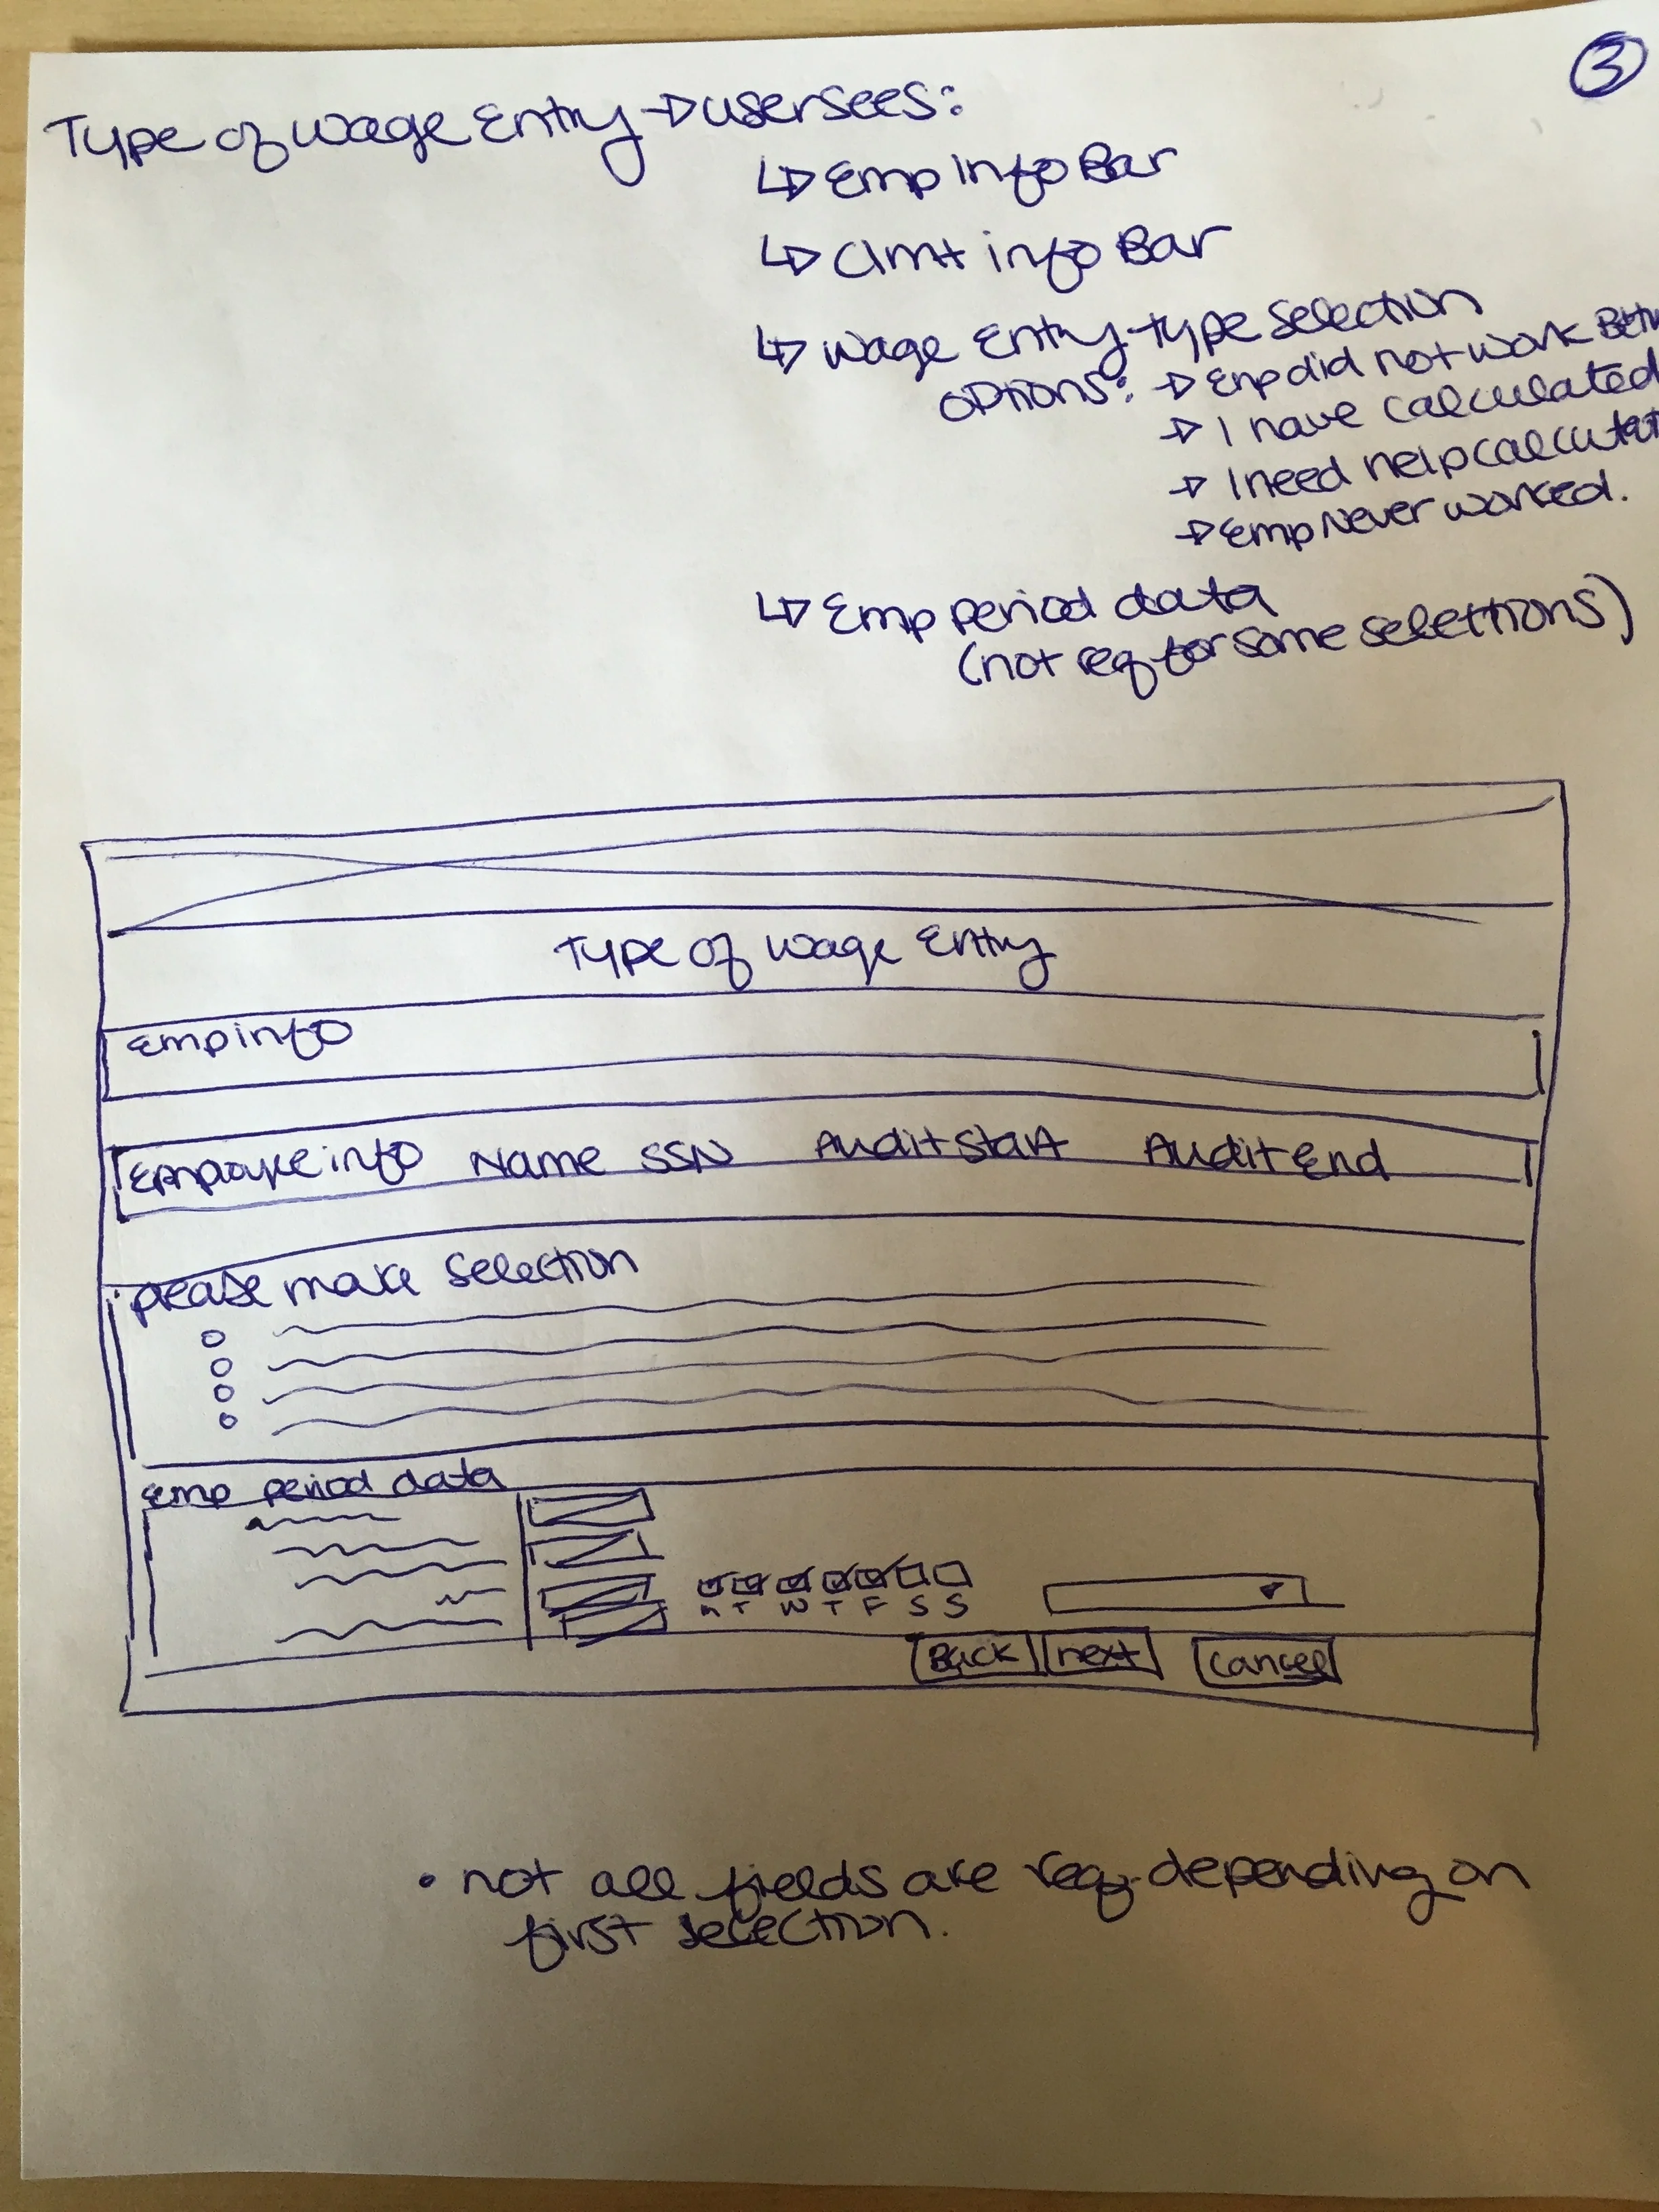 3
Type of wage Entry → user sees:
↳ Emp info Bar
↳ Clmt info Bar
↳ wage Entry type selection
options: → Emp did not work
→ I have calculated
→ I need help
→ Emp Never worked.
↳ Emp period data
(not req for some selections)
Type of wage Entry
Emp info
Employee info Name SSN Audit Start Audit End
please make selection
Emp period data
M T W T F S S
Back next Cancel
• not all fields are req. depending on
first selection.